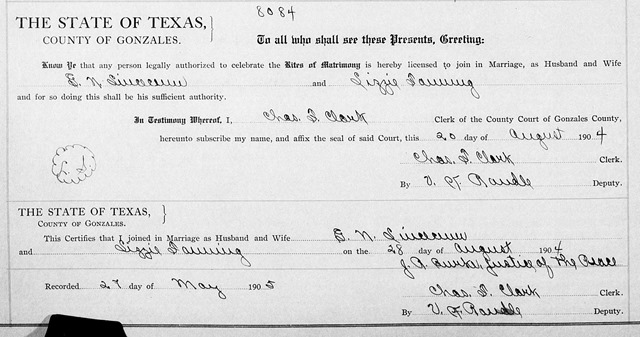 8084
THE STATE OF TEXAS,
COUNTY OF GONZALES.
To all who shall see these Presents, Greeting:
Know Ye that any person legally authorized to celebrate the Rites of Matrimony is hereby licensed to join in Marriage, as Husband and Wife
and Lizzie
and for so doing this shall be his sufficient authority.
In Testimony Whereof, I, Chas. S. Clark Clerk of the County Court of Gonzales County,
hereunto subscribe my name, and affix the seal of said Court, this 20 day of August 1904
Chas. S. Clark Clerk.
By V. F. Randle Deputy.
THE STATE OF TEXAS,
COUNTY OF GONZALES.
This Certifies that I joined in Marriage as Husband and Wife
and Lizzie on the 28 day of August 1904
J. A. Burke, Justice of The Peace
Recorded 27 day of May 1905 Chas. S. Clark Clerk.
By V. F. Randle Deputy.